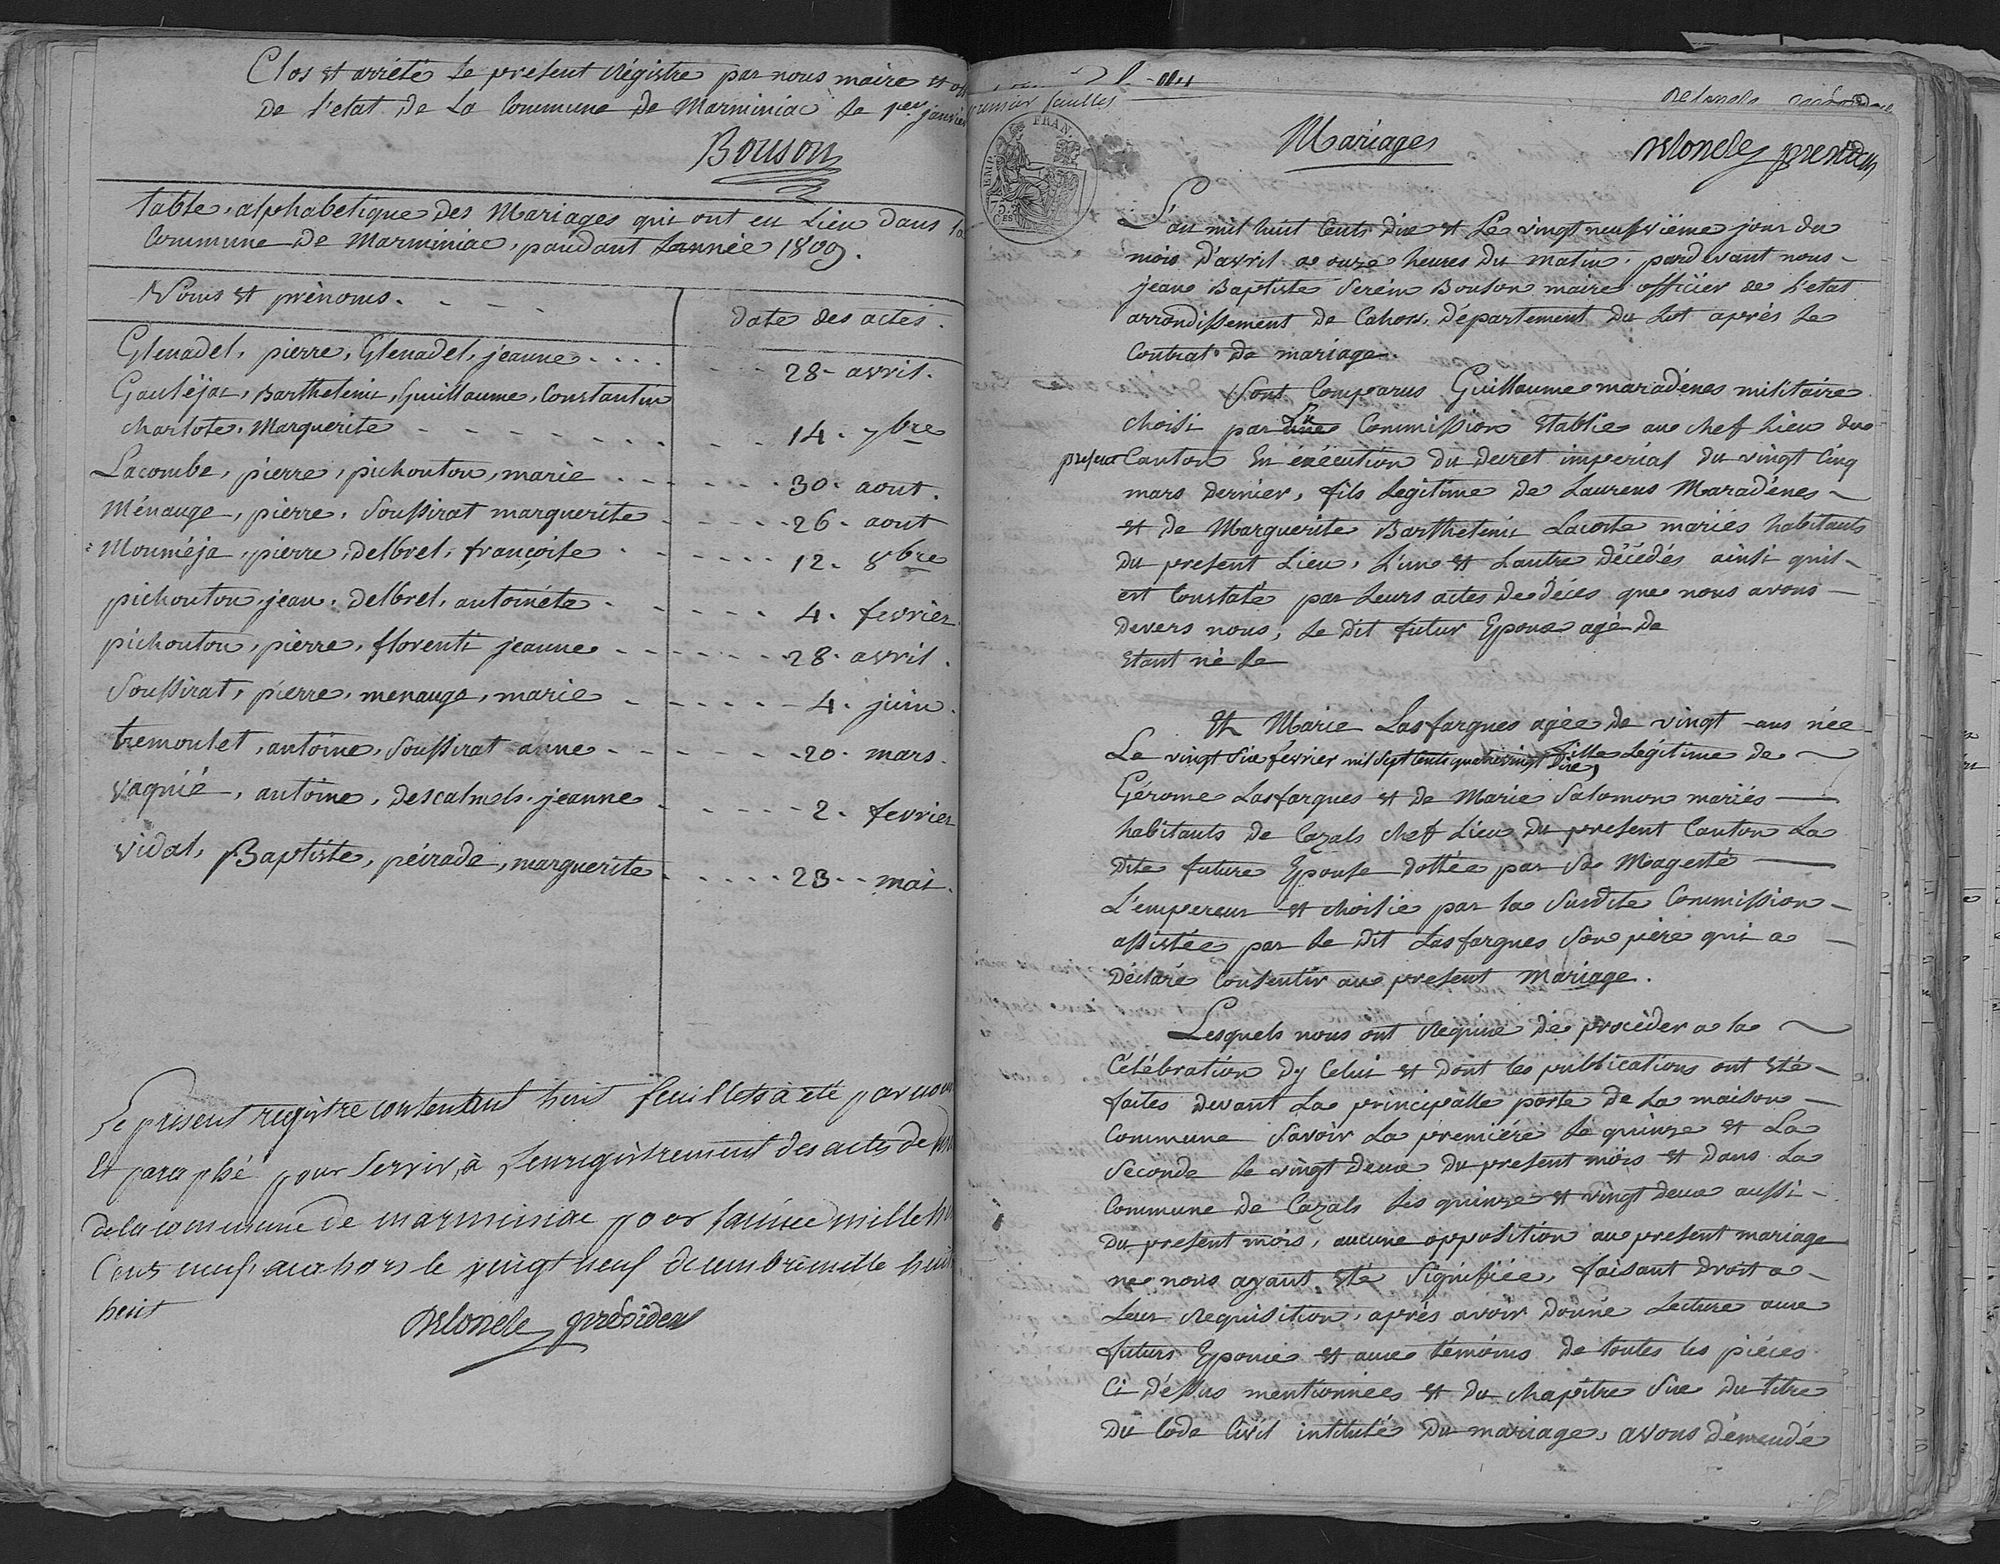 Clos et arrêté le present Régistre par nous maire et
de l'etat de la Commune de Marminiac le 1er janvier
Bouson
table alphabetique des Mariages qui ont eu Lieu dans la
Commune de Marminiac, pandant Lannée 1809.
Noms et prénoms.
date des actes.
Glenadel, pierre, Glenadel, jeanne . . . . 28 avril.
Gauléjac, Barthelemi, Guillaume, Constantin
charlote, Marguerite 14. 7bre
Lacombe, pierre, pichouton, marie 30. aout.
Ménauge, pierre, Soussirat marguerite 26. aout
Mouméja, pierre, delbrel, françoise 12. 8bre
pichouton, jean, delbrel, antoinéte 4. fevrier
pichouton, pierre, florenti jeanne 28. avril.
Soussirat, pierre, menauge, marie 4. juin.
tremoulet, antoine, Soussirat anne 20. mars.
vaquié, antoine, descalmels, jeanne 2. fevrier
vidal, Baptiste, péirade, marguerite 23. mai.
Le présent registre contentent huit feuillets à été par nous
Et paraphé pour Servir à l'enregistrement des actes de
de la commune de marminiac pour lannée mille hui
Cens neuf, a cahors le vingt neuf decembre mille huit
huit
Delonde présiden
premier feuillet
EMP. FRAN.
Delonde
Mariages
Delonde presiden
L'an mil huit Cents dix et le vingt neufvième jour du
mois d'avril a onze heures du matin, pardevant nous
jean Baptiste Serém Bouson maire officier de l'etat
arrondissement de Cahors, département du Lot après le
Contrat de mariage.
Sont Comparus Guillaume maradénes militaire
choisi par une La Commission Etablie au chef Lieu du
present Canton En exécution du decret imperial du vingt Cinq
mars dernier, fils Legitime de Laurens Maradénes
et de Marguerite Barthelemi Lacoste mariés habitants
du present Lieu, L'un et Lautre décédés ainsi quil
est Constaté par Leurs actes de décès que nous avons
devers nous, le dit futur Epoux agé de
Etant né le
Et Marie Lasfargues agée de vingt ans née
Le vingt Six fevrier mil Sept Cents quatrevingt dix, fille Légitime de
Gérome Lasfargues et de Marie Salomon mariés
habitants de Cazals chef Lieu du present Canton La
dite future Epouse dottée par Sa Magesté
L'empereur et choisie par la Susdite Commission
assistée par le dit Lasfargues Son père qui a
déclaré Consentir au present Mariage.
Lesquels nous ont Requise de procéder a la
Célébration dy Celui et dont les publications ont été
faites devant La principalle porte de La maison
Commune Savoir La première le quinze et La
Seconde le vingt deux du present mois et dans La
Commune de Cazals les quinze et vingt deux aussi
du present mois, aucune opposition au present mariage
ne nous ayant été Signifiée, faisant droit a
Leur Requisition, après avoir donné Lecture aux
futurs Epouse et aux témoins de toutes les pièces
Ci dessus mentionnées et du chapitre Six du titre
du Code Civil intitulé du mariage, avons démendé